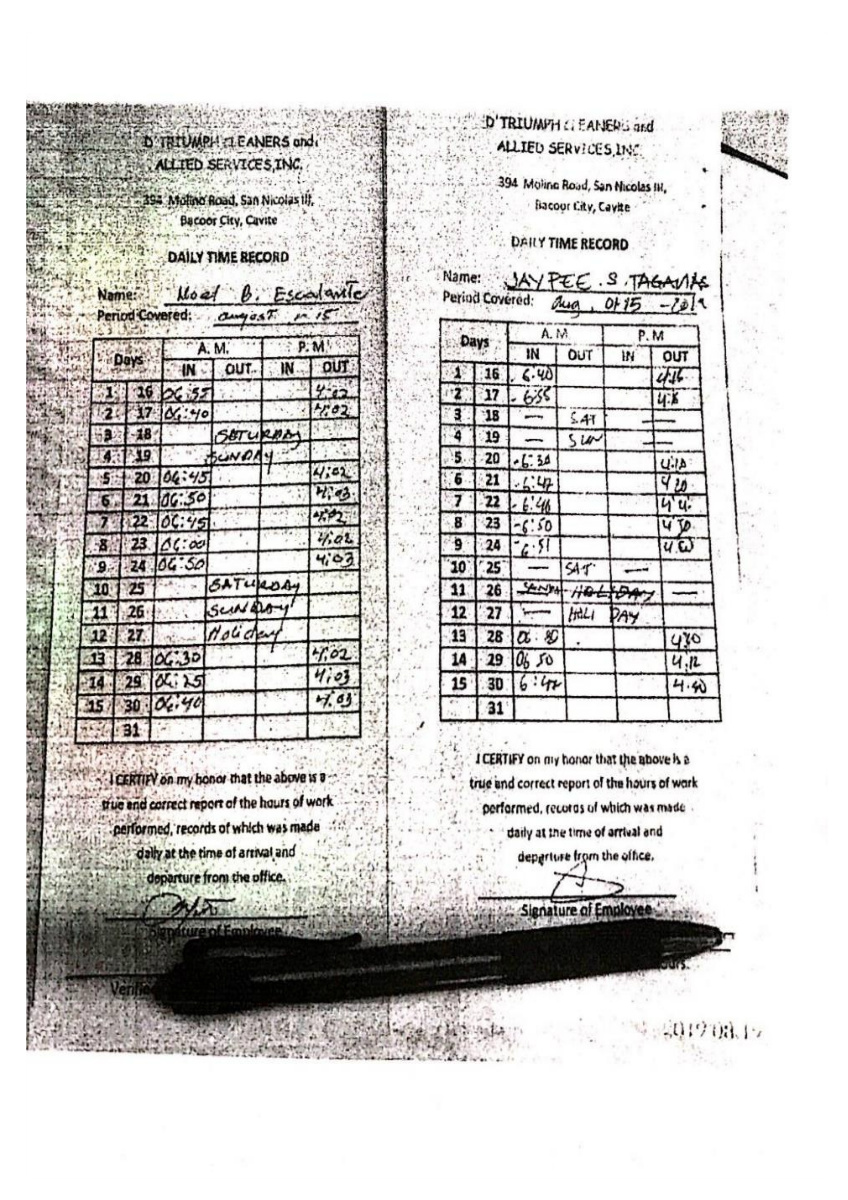 D'TRIUMPH CLEANERS and
ALLIED SERVICES, INC.
394 Molino Road, San Nicolas III,
Bacoor City, Cavite
DAILY TIME RECORD
Name: Noel B. Escalante
Period Covered: 15
Days A. M. P. M
IN OUT IN OUT
1 16 06:55 4:02
2 17 06:40 4:02
3 18 SATURDAY
4 19 SUNDAY
5 20 06:45 4:02
6 21 06:50 4:03
7 22 06:45 4:02
8 23 06:00 4:02
9 24 06:50 4:03
10 25 SATURDAY
11 26 SUNDAY
12 27 Holiday
13 28 06:30 4:02
14 29 06:25 4:03
15 30 06:40 4:03
31
I CERTIFY on my honor that the above is a
true and correct report of the hours of work
performed, records of which was made
daily at the time of arrival and
departure from the office.
Signature of Employee
D'TRIUMPH CLEANERS and
ALLIED SERVICES, INC.
394 Molino Road, San Nicolas III,
Bacoor City, Cavite
DAILY TIME RECORD
Name: JAYPEE S.
Period Covered: Aug, 01 15 - 2019
Days A. M P. M
IN OUT IN OUT
1 16 6:40 4:16
2 17
3 18 — SAT —
4 19 — SUN —
5 20 6:30 4:10
6 21 6:47 4 20
7 22 6:46
8 23 6:50
9 24 6:51
10 25 — SAT —
11 26 HOLIDAY —
12 27 — HOLI DAY
13 28 06
14 29 06 50 4.12
15 30 4.40
31
I CERTIFY on my honor that the above is a
true and correct report of the hours of work
performed, records of which was made
daily at the time of arrival and
departure from the office.
Signature of Employee